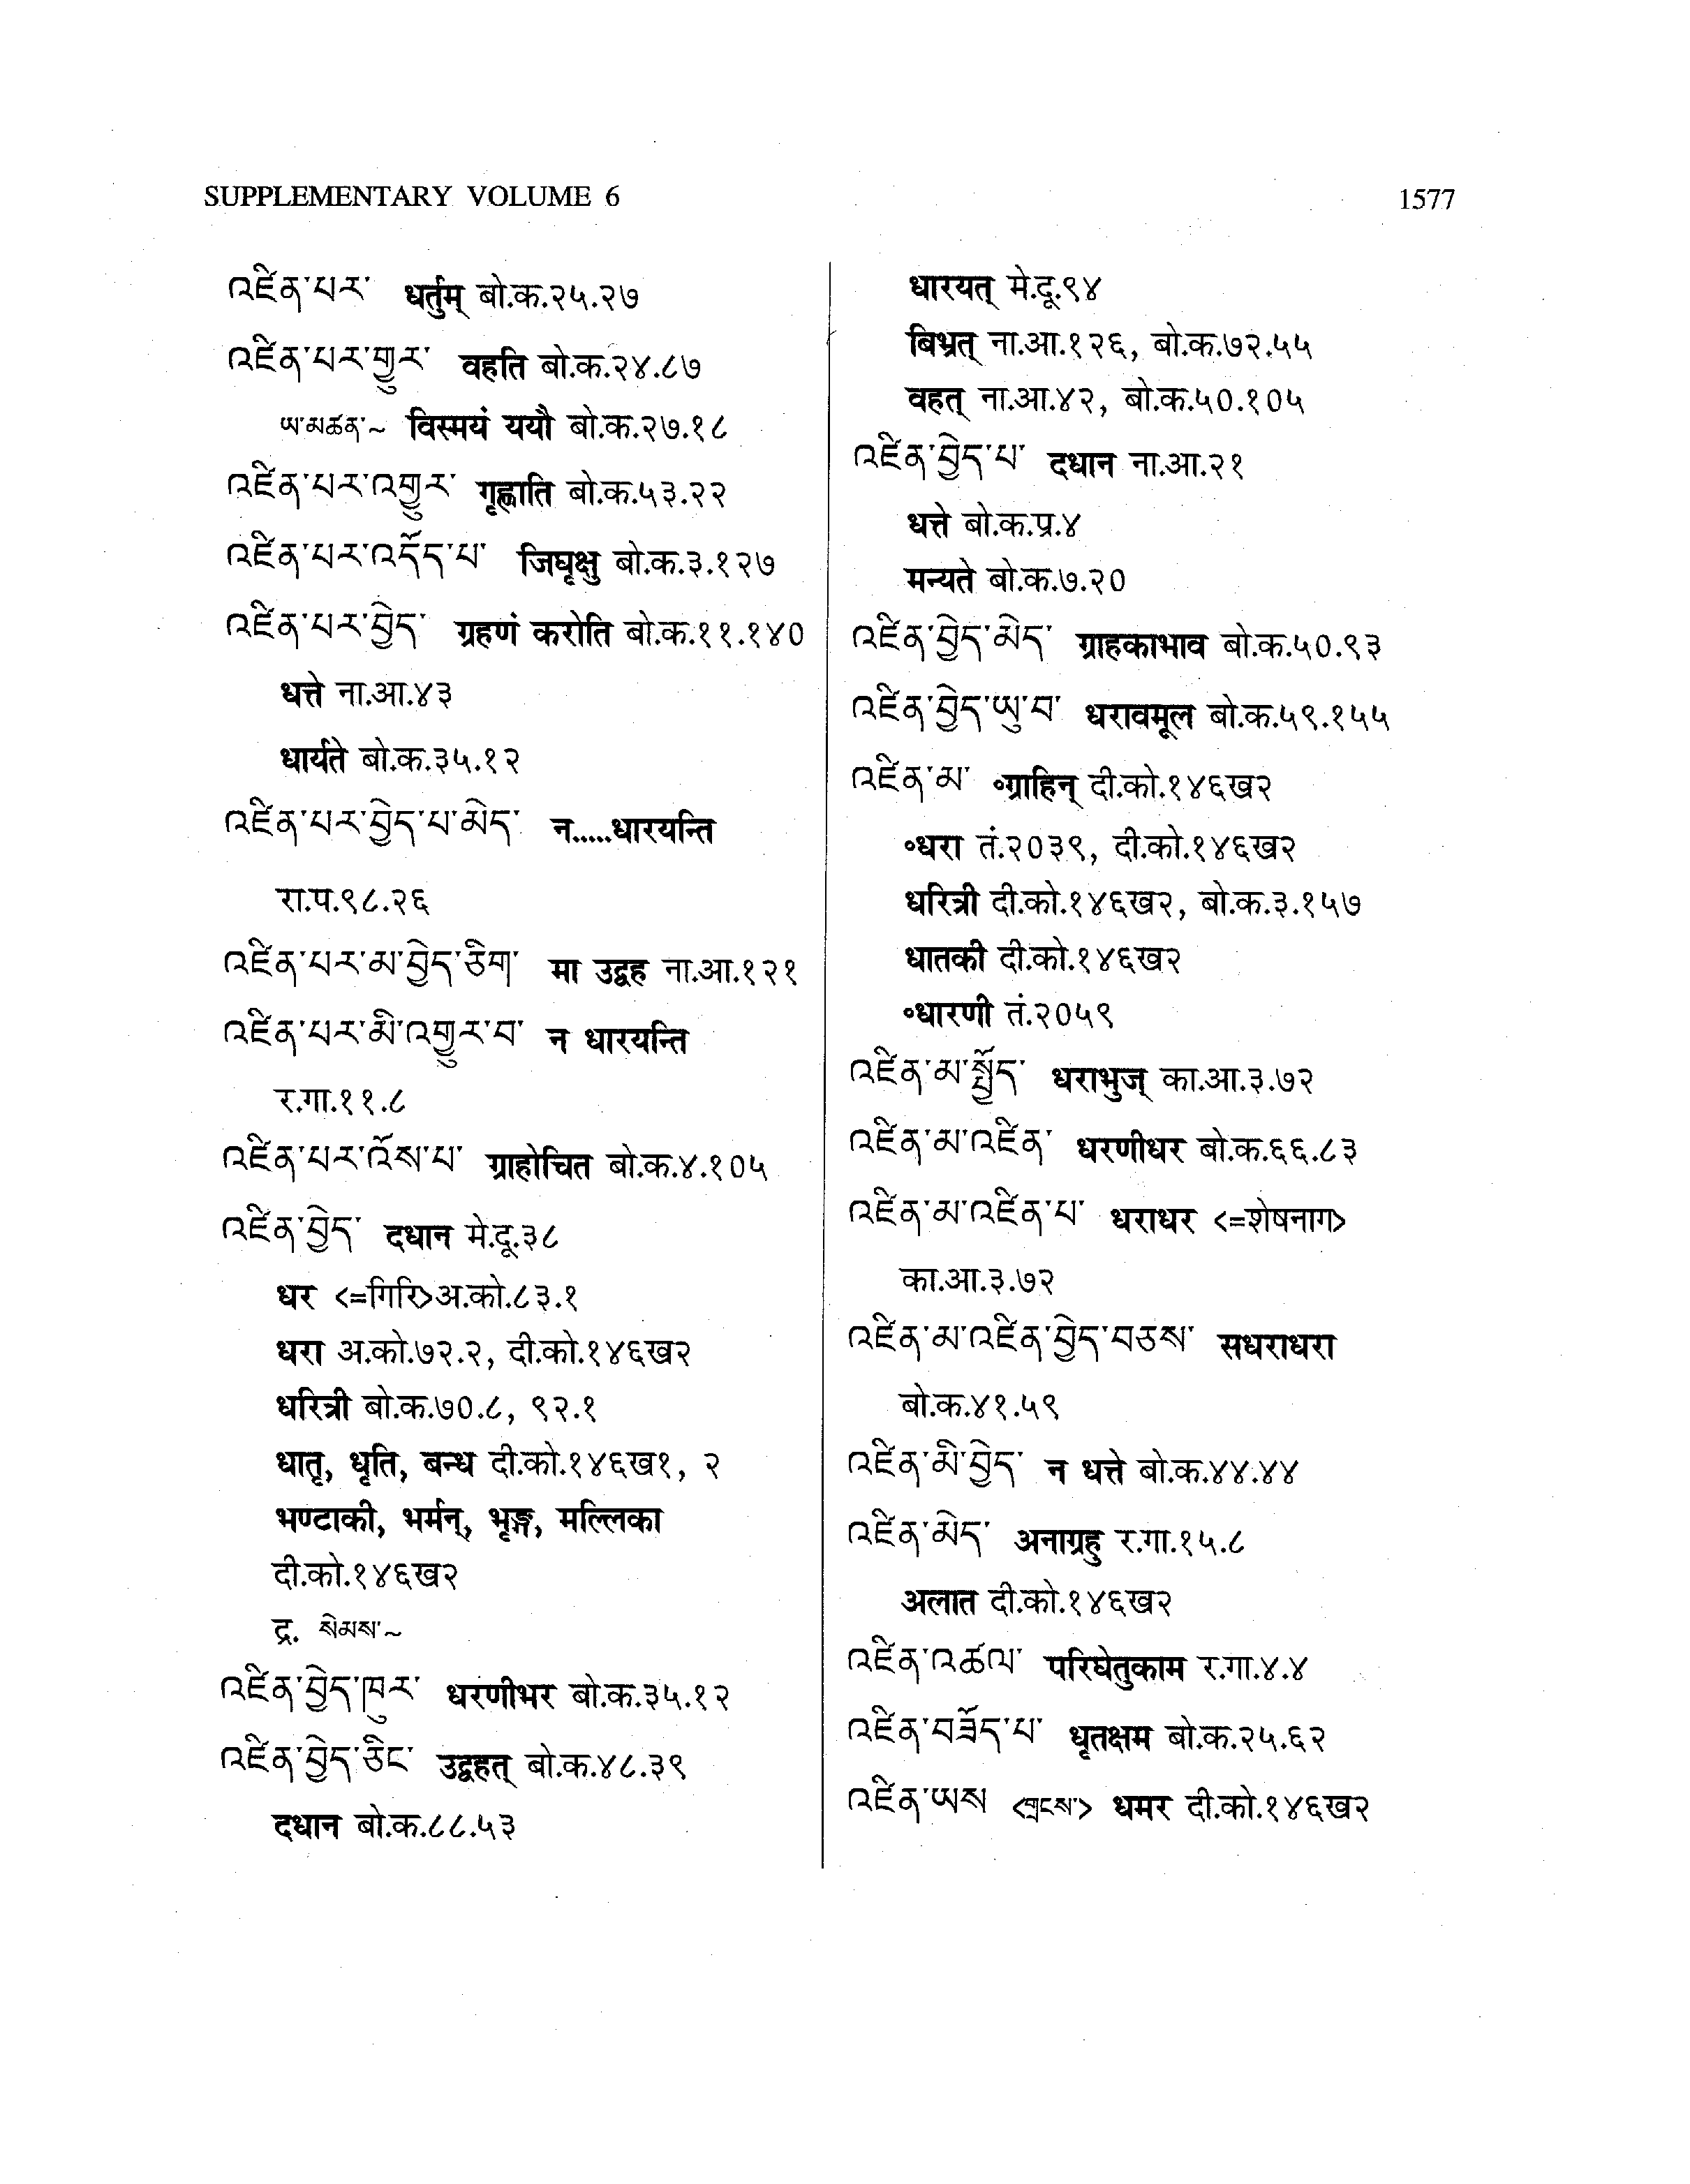 SUPPLEMENTARY VOLUME 6
1577
འཛིན་པར་ धर्तुम् बो.क.२५.२७
འཛིན་པར་གྱུར་ वहति बो.क.२४.८७
ཡ་མཚན་~ विस्मयं ययौ बो.क.२७.१८
འཛིན་པར་འགྱུར་ गृह्णाति बो.क.५३.२२
འཛིན་པར་འདོད་པ་ जिघृक्षु बो.क.३.१२७
འཛིན་པར་བྱེད་ ग्रहणं करोति बो.क.११.१४०
धत्ते ना.आ.४३
धार्यते बो.क.३५.१२
འཛིན་པར་བྱེད་པ་མེད་ न.....धारयन्ति
रा.प.९८.२६
འཛིན་པར་མ་བྱེད་ཅིག་ मा उद्वह ना.आ.१२१
འཛིན་པར་མི་འགྱུར་བ་ न धारयन्ति
र.गा.११.८
འཛིན་པར་འོས་པ་ ग्राहोचित बो.क.४.१०५
འཛིན་བྱེད་ दधान मे.दू.३८
धर <=गिरि>अ.को.८३.१
धरा अ.को.७२.२, दी.को.१४६ख२
धरित्री बो.क.७०.८, ९२.१
धातृ, धृति, बन्ध दी.को.१४६ख१, २
भण्टाकी, भर्मन्, भृङ्ग, मल्लिका
दी.को.१४६ख२
द्र. སེམས་~
འཛིན་བྱེད་ཁུར་ धरणीभर बो.क.३५.१२
འཛིན་བྱེད་ཅིང་ उद्वहत् बो.क.४८.३९
दधान बो.क.८८.५३
धारयत् मे.दू.९४
बिभ्रत् ना.आ.१२६, बो.क.७२.५५
वहत् ना.आ.४२, बो.क.५०.१०५
འཛིན་བྱེད་པ་ दधान ना.आ.२१
धत्ते बो.क.प्र.४
मन्यते बो.क.७.२०
འཛིན་བྱེད་མེད་ ग्राहकाभाव बो.क.५०.९३
འཛིན་བྱེད་ཡུ་བ་ धरावमूल बो.क.५९.१५५
འཛིན་མ་ ॰ग्राहिन् दी.को.१४६ख२
॰धरा तं.२०३९, दी.को.१४६ख२
धरित्री दी.को.१४६ख२, बो.क.३.१५७
धातकी दी.को.१४६ख२
॰धारणी तं.२०५९
འཛིན་མ་སྤྱོད་ धराभुज् का.आ.३.७२
འཛིན་མ་འཛིན་ धरणीधर बो.क.६६.८३
འཛིན་མ་འཛིན་པ་ धराधर <=शेषनाग>
का.आ.३.७२
འཛིན་མ་འཛིན་བྱེད་བཅས་ सधराधरा
बो.क.४१.५९
འཛིན་མི་བྱེད་ न धत्ते बो.क.४४.४४
འཛིན་མེད་ अनाग्रहु र.गा.१५.८
अलात दी.को.१४६ख२
འཛིན་འཚལ་ परिघेतुकाम र.गा.४.४
འཛིན་བཟོད་པ་ धृतक्षम बो.क.२५.६२
འཛིན་ཡས <གྲངས་> धमर दी.को.१४६ख२